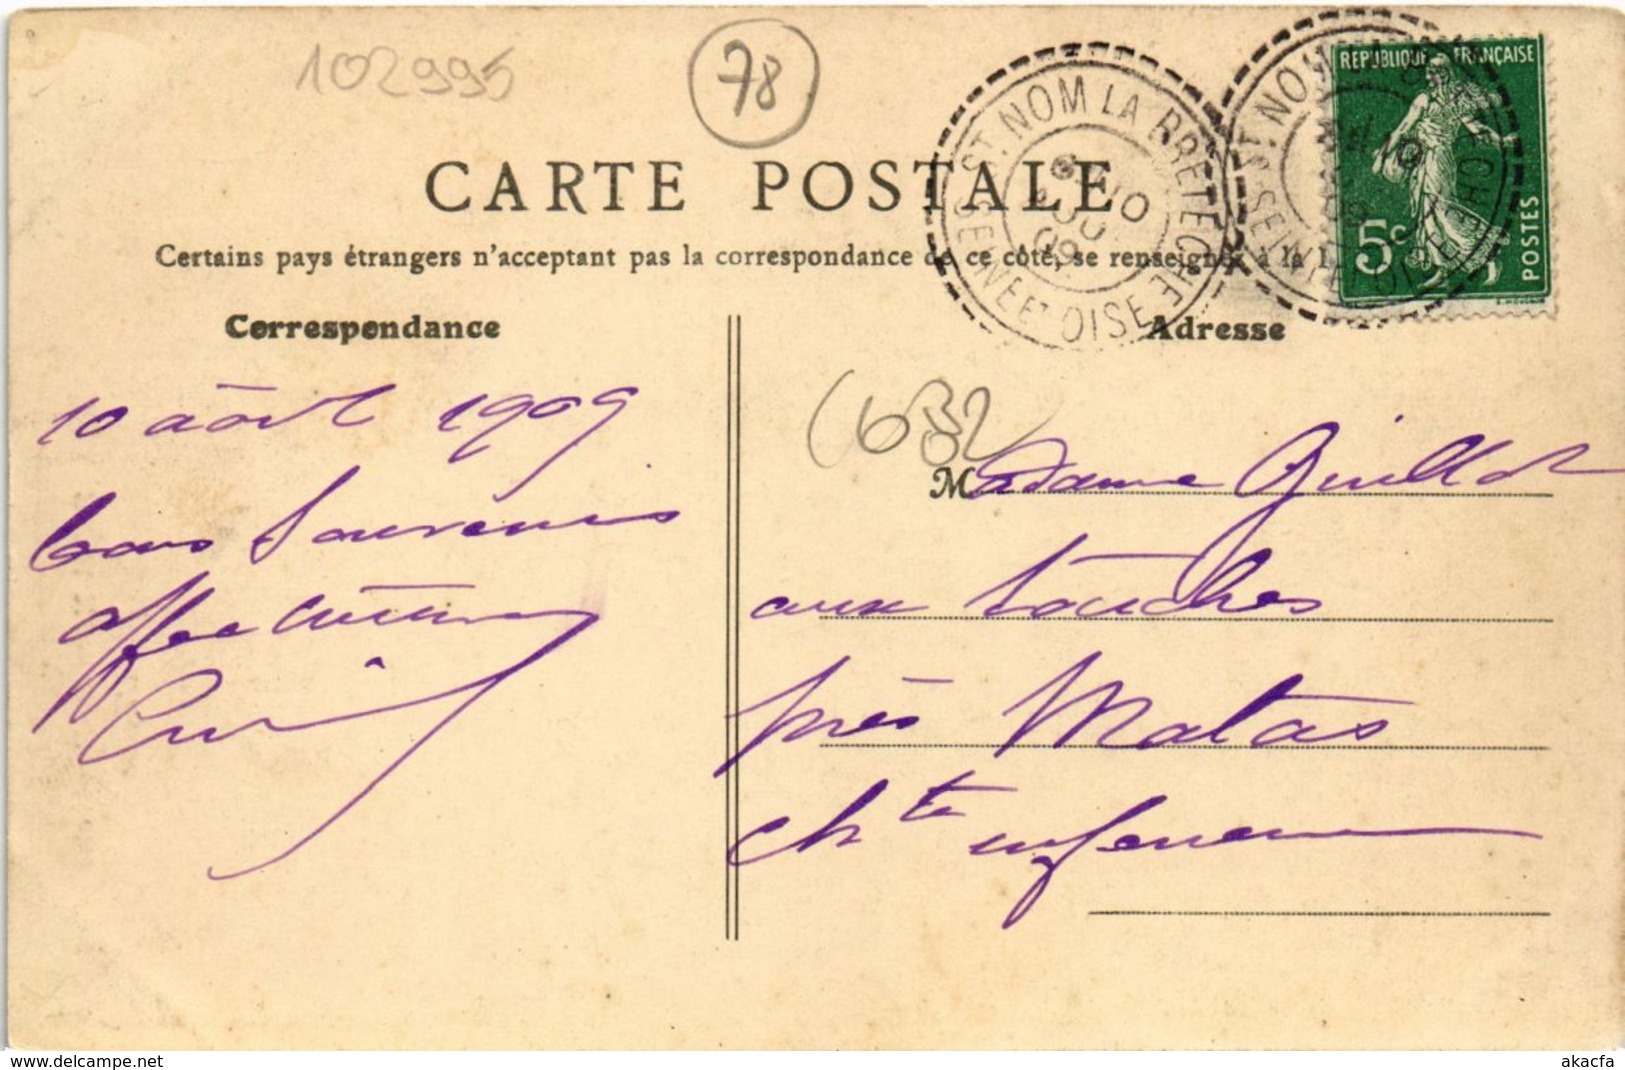 102995
78
CARTE POSTALE
Certains pays étrangers n'acceptent pas la correspondance de ce côté, se renseigner à la
ST. NOM LA BRETECHE
SEINE ET OISE
ST. NOM
SEINE ET OISE
REPUBLIQUE FRANÇAISE
5c
POSTES
Correspondance
Adresse
10 août 1909
bons Souvenirs
affectueux
Madame Guillot
aux touches
près Matas
chte inférieure
www.delcampe.net
akacfa